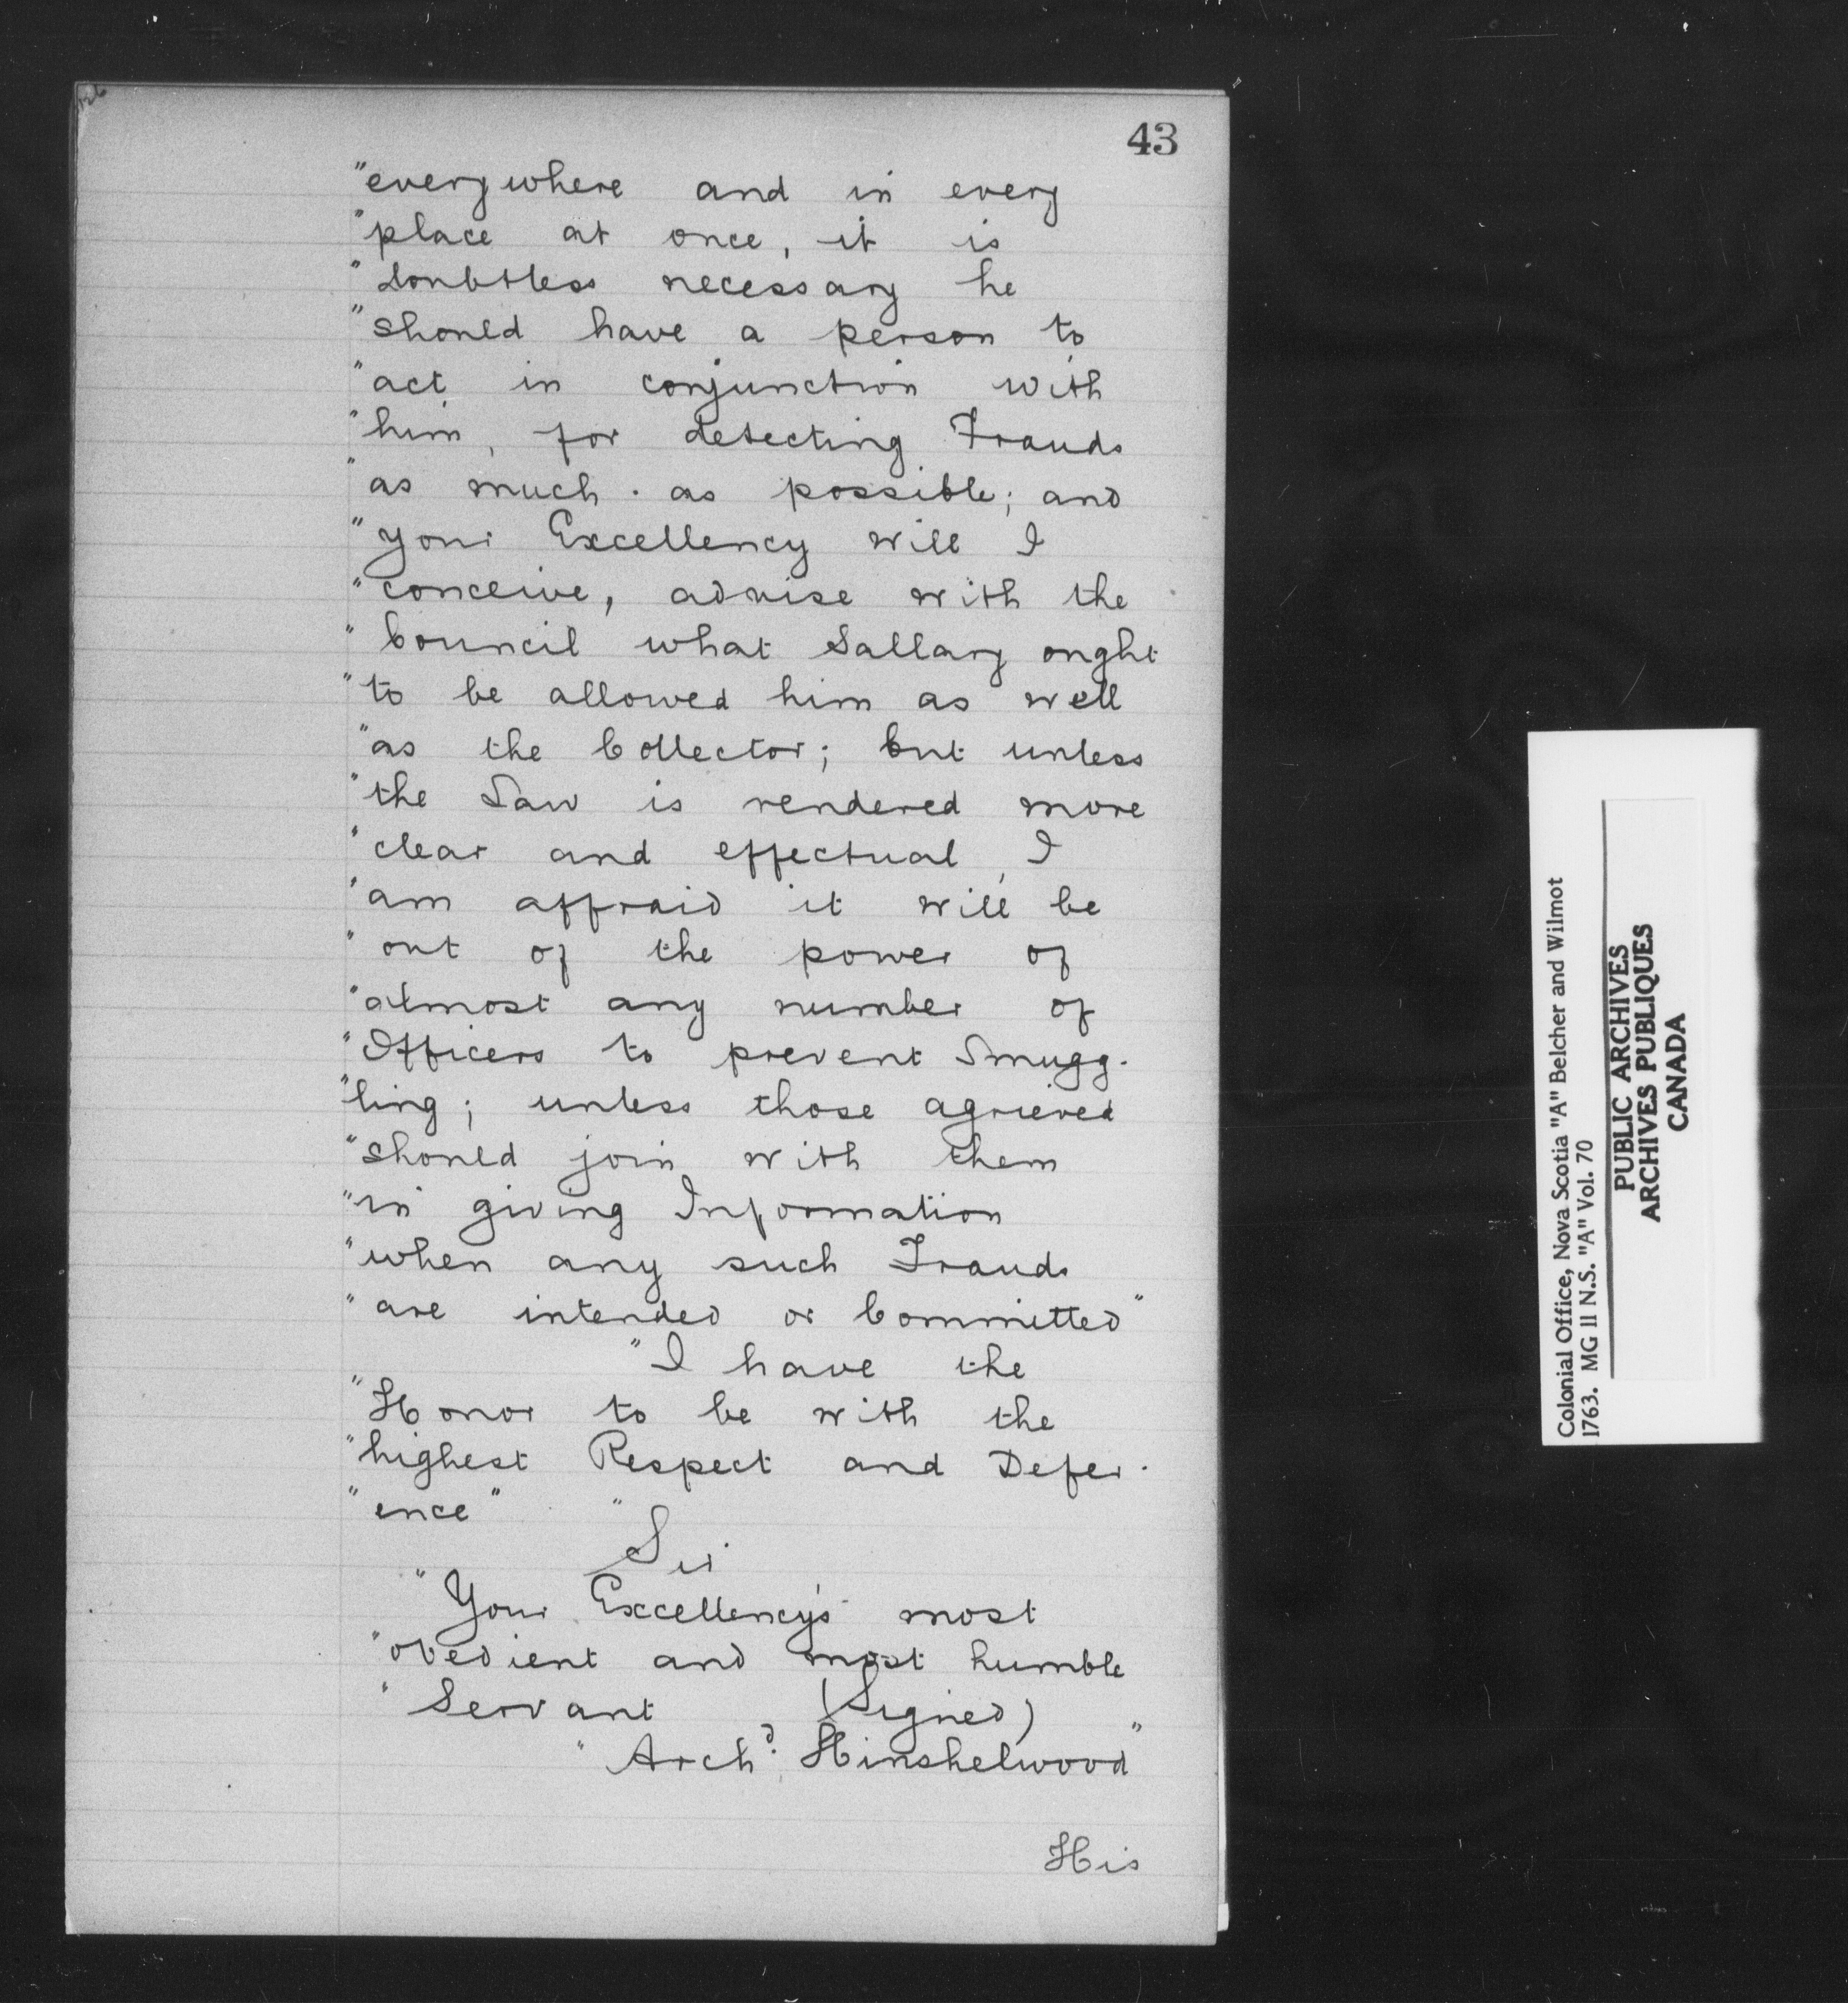 43
"everywhere and in every
"place at once, it is
"doubtless necessary he
"should have a person to
"act in conjunction with
"him, for detecting Frauds
"as much as possible; and
"your Excellency will I
"conceive, advise with the
"Council what Sallary ought
"to be allowed him as well
"as the Collector; but unless
"the Law is rendered more
"clear and effectual, I
"am affraid it will be
"out of the power of
"almost any number of
"Officers to prevent Smugg-
"ling; unless those agrieved
"should join with them
"in giving Information
"when any such Frauds
"are intended or Committed"
"I have the
"Honor to be with the
"highest Respect and Defer-
"ence"
"Sir
"Your Excellency's most
"obedient and most humble
"Servant (Signed)
"Archd. Hinshelwood"
His
Colonial Office, Nova Scotia "A" Belcher and Wilmot
1763. MG 11 N.S. "A" Vol. 70
PUBLIC ARCHIVES
ARCHIVES PUBLIQUES
CANADA